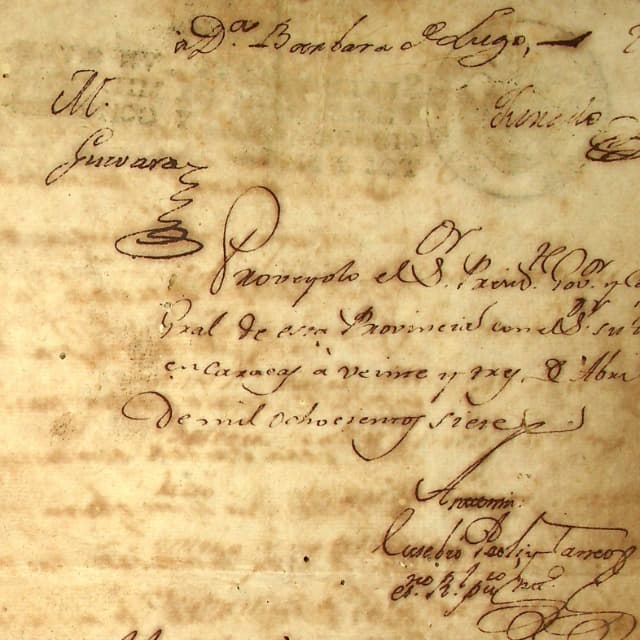 à D.ª Barbara de Lugo,
M.
Guevara
Proveyolo el S.ºr Presid.te Gov.ºr y Ca
Gral de esta Provincia con el S.ºr su
en Caracas à veinte y tres de Abri
de mil ochocientos siete
Antemi.
Eusebio